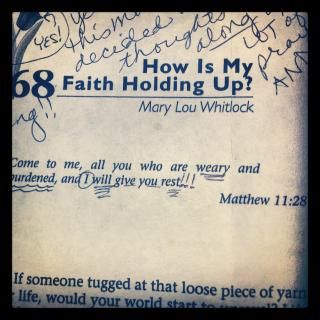 YES!
this mo
decided
thoughts
along
LOT of
prai
AND
68
How Is My
Faith Holding Up?
Mary Lou Whitlock
ng!!
Come to me, all you who are weary and
burdened, and I will give you rest!!!
Matthew 11:28
If someone tugged at that loose piece of yarn
life, would your world start to unravel?